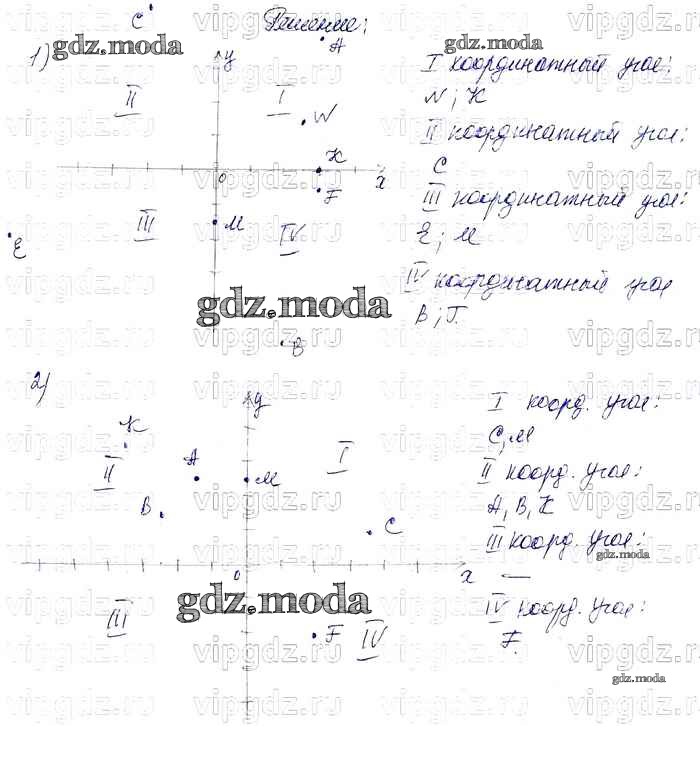 Решение:
1)
C
A
y
II
I
N
K
0
x
F
III
M
IV
E
B
I координатный угол:
N; K
II координатный угол:
C
III координатный угол:
E; M
IV координатный угол
B; F.
gdz.moda
gdz.moda
gdz.moda
2)
y
K
A
I
II
M
B
C
0
x
III
F
IV
I коорд. угол:
C, M
II коорд. угол:
A, B, K
III коорд. угол:
—
IV коорд. угол:
F.
gdz.moda
gdz.moda
gdz.moda
vipgdz.ru